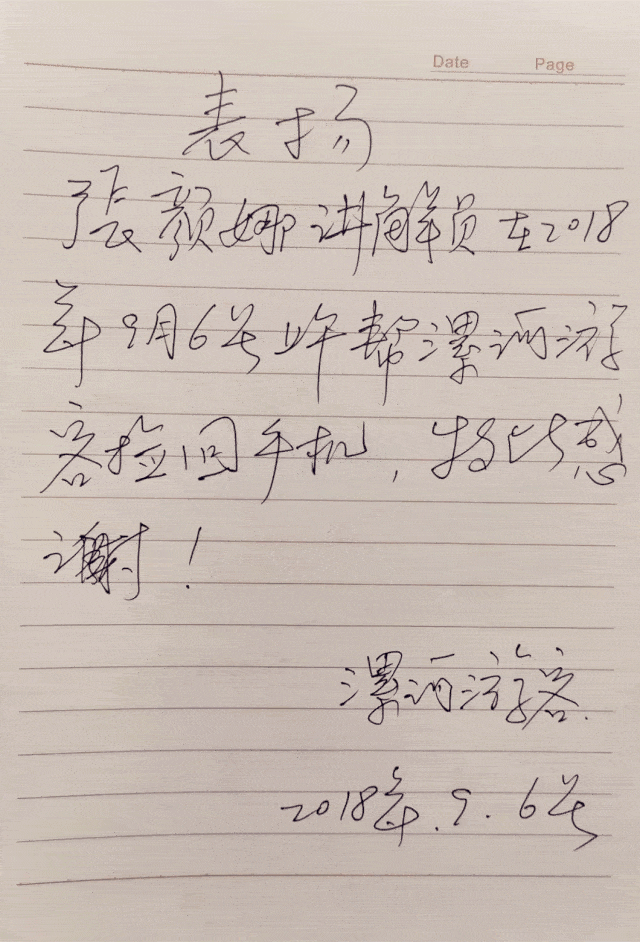 Date Page
表扬
張颜娜讲解员在2018
年9月6号上午帮漯河游
客捡回手机，特此感
谢！
漯河游客.
2018年.9.6号